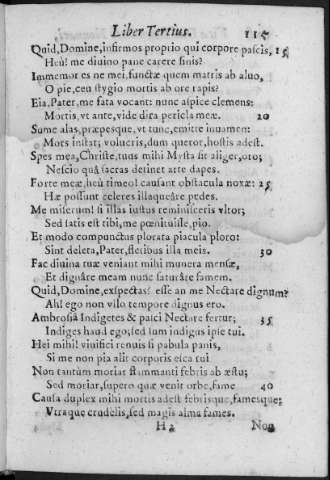 Liber Tertius. 115
Quid, Domine, infirmos proprio qui corpore pascis, 15
Heù! me diuino pane carere sinis?
Immemor es ne mei, functæ quem matris ab aluo,
O pie, ceu stygio mortis ab ore rapis?
Eia, Pater, me fata vocant: nunc aspice clemens:
Mortis, vt ante, vide dira pericla meæ. 20
Sume alas, præpesque, vt tunc, emitte iuuamen:
Mors instat; volucris, dum queror, hostis adest.
Spes mea, Christe, tuus mihi Mysta sit aliger, oro;
Nescio quâ sacras detinet arte dapes.
Forte meæ, heù timeo! causant obstacula noxæ: 25
Hæ possunt celeres illaqueâre pedes.
Me miserum! si illas iustus reminisceris vltor;
Sed satis est tibi, me pœnituisse, pio.
Et modo compunctus plorata piacula ploro:
Sint deleta, Pater, fletibus illa meis. 30
Fac diuina tuæ veniant mihi munera mensæ,
Et dignâre meam nunc saturâre famem.
Quid, Domine, exspectas? esse an me Nectare dignum?
Ah! ego non vllo tempore dignus ero.
Ambrosiâ Indigetes & pasci Nectare fertur; 35
Indiges haud ego, sed sum indigus ipse tui.
Hei mihi! viuifici renuis si pabula panis,
Si me non pia alit corporis esca tui
Non tantùm moriar flammanti febris ab æstu;
Sed moriar, supero quæ venit orbe, fame 40
Causa duplex mihi mortis adest febrisque, famesque;
Vtraque crudelis, sed magis alma fames.
H 2 Non